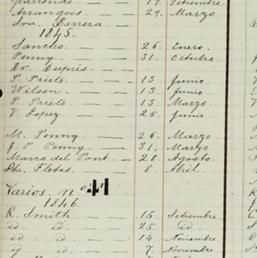 19. Setiembre
Arranguis — 29. Marzo
Sra. Barrera.
1845.
Sancho. — 26. Enero.
Penny — 31. Octubre.
P. Prieto — 13 Junio
Wilson. — 13. Junio
P. Prieto — 13 Marzo
V. Lopez — 25 Junio
M. Penny — 26. Marzo
J. P. Penny. — 31. Marzo
Marco del Pont. — 28. Agosto
Fletes. — 8. Abril
Varios. nº 41
1846.
R. Smith — 15 Setiembre
id id — 25 id
id id — 14 Noviembre
id id — 7 Noviembre